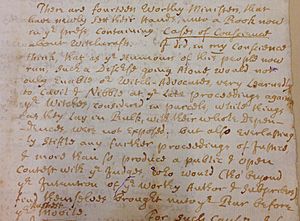 There are fourteen Worthy Ministers that
have newly set their Hands, unto a Book now
in ye press, containing Cases of Conscience
about Witchcraft. I did, in my Conscience
think, that as ye Humours of this people now
run, such a Discourse going Alone would not
only Enable or Witch-Advocates, very Learnedly
to Cavil & Nibble at ye Late proceedings against
ye Witches, considered in parcels, while things
as they lay in Bulk, with their whole Depen-
dences were not exposed; but also Everlasting-
ly Stifle any further proceedings of Justice,
& more than so, produce a public & open
Contest with ye Judges, who would (tho beyond
ye Intention of ye Worthy Author & Subscribers)
find themselves brought unto ye Bar before
ye Mobile.
For such Cause